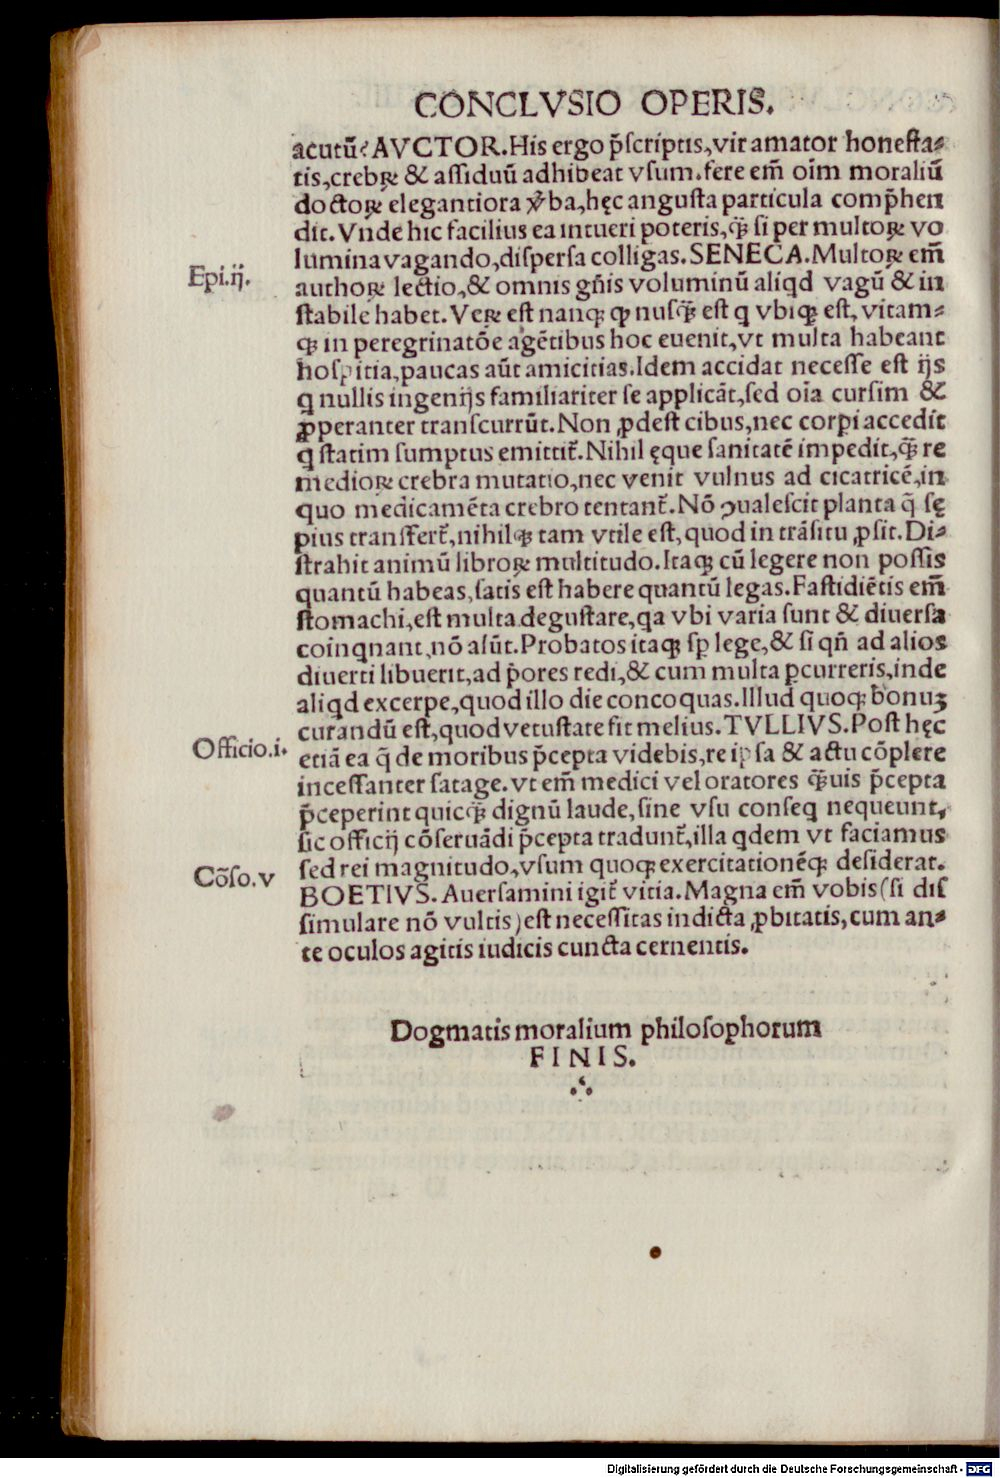 CONCLVSIO OPERIS.
acutū? AVCTOR. His ergo p̄scriptis, vir amator honesta⸗
tis, crebꝝ & assiduū adhibeat vsum. fere em̄ oīm moraliū
doctoꝝ elegantiora v̓ba, hęc angusta particula comp̄hen
dit. Vnde hic facilius ea intueri poteris, q̄ꝫ si per multoꝝ vo
lumina vagando, dispersa colligas. SENECA. Multoꝝ em̄
Epi.ij.
authoꝝ lectio, & omnis gn̄is voluminū aliqd vagū & in
stabile habet. Veꝝ est nanqꝫ ꝙ nusq̄ꝫ est q vbiqꝫ est, vitam⸗
qꝫ in peregrinatōe agētibus hoc euenit, vt multa habeant
hospitia, paucas aūt amicitias. Idem accidat necesse est ijs
q nullis ingenijs familiariter se applicāt, sed oīa cursim &
ꝓperanter transcurrūt. Non ꝓdest cibus, nec corpi accedit
q statim sumptus emittit̄. Nihil ęque sanitatē impedit, q̄ꝫ re
medioꝝ crebra mutatio, nec venit vulnus ad cicatricē, in
quo medicamēta crebro tentant̄. Nō ꝯualescit planta q̄ sę
pius transfert̄, nihilqꝫ tam vtile est, quod in trāsitu ꝓsit. Di⸗
strahit animū libroꝝ multitudo. Itaqꝫ cū legere non possis
quantū habeas, satis est habere quantū legas. Fastidiētis em̄
stomachi, est multa degustare, qa vbi varia sunt & diuersa
coinqnant, nō alūt. Probatos itaqꝫ sꝑ lege, & si qn̄ ad alios
diuerti libuerit, ad p̓ores redi, & cum multa ꝑcurreris, inde
aliqd excerpe, quod illo die concoquas. Illud quoqꝫ bonuꝫ
curandū est, quod vetustate fit melius. TVLLIVS. Post hęc
Officio.i.
etiā ea q̄ de moribus p̄cepta videbis, re ipsa & actu cōplere
incessanter satage. vt em̄ medici vel oratores q̄ꝫuis p̄cepta
p̄ceperint quicq̄ꝫ dignū laude, sine vsu conseq nequeunt,
sic officij cōseruādi p̄cepta tradunt̄, illa qdem vt faciamus
Cōso.v
sed rei magnitudo, vsum quoqꝫ exercitationēqꝫ desiderat.
BOETIVS. Auersamini igit̄ vitia. Magna em̄ vobis (si dis
simulare nō vultis) est necessitas indicta ꝓbitatis, cum an⸗
te oculos agitis iudicis cuncta cernentis.
Dogmatis moralium philosophorum
FINIS.
Digitalisierung gefördert durch die Deutsche Forschungsgemeinschaft - DFG